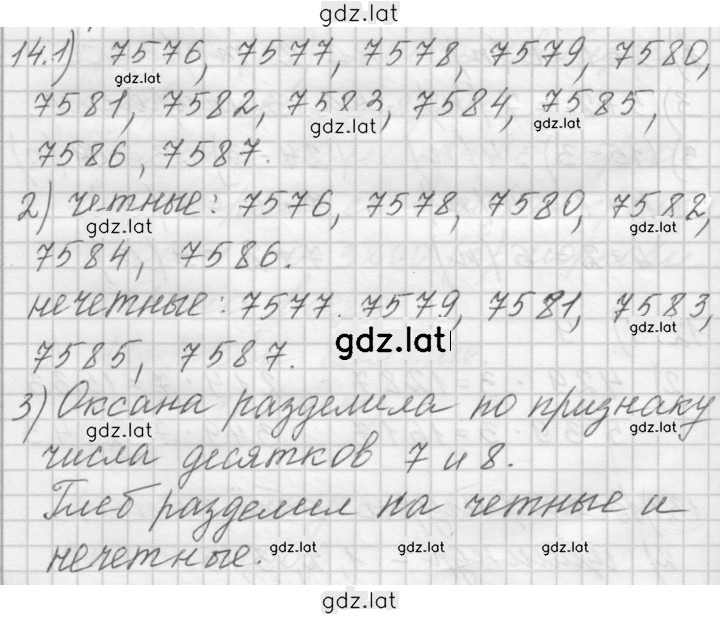 gdz.lat
14.1) 7576, 7577, 7578, 7579, 7580,
gdz.lat
7581, 7582, 7583, 7584, 7585,
gdz.lat gdz.lat
7586, 7587.
2) четные: 7576, 7578, 7580, 7582,
gdz.lat gdz.lat
7584, 7586.
нечетные: 7577. 7579, 7581, 7583,
gdz.lat gdz.lat
7585, 7587.
3) Оксана разделила по признаку
gdz.lat gdz.lat
числа десятков 7 и 8.
Глеб разделил на четные и
нечетные.
gdz.lat gdz.lat gdz.lat
gdz.lat